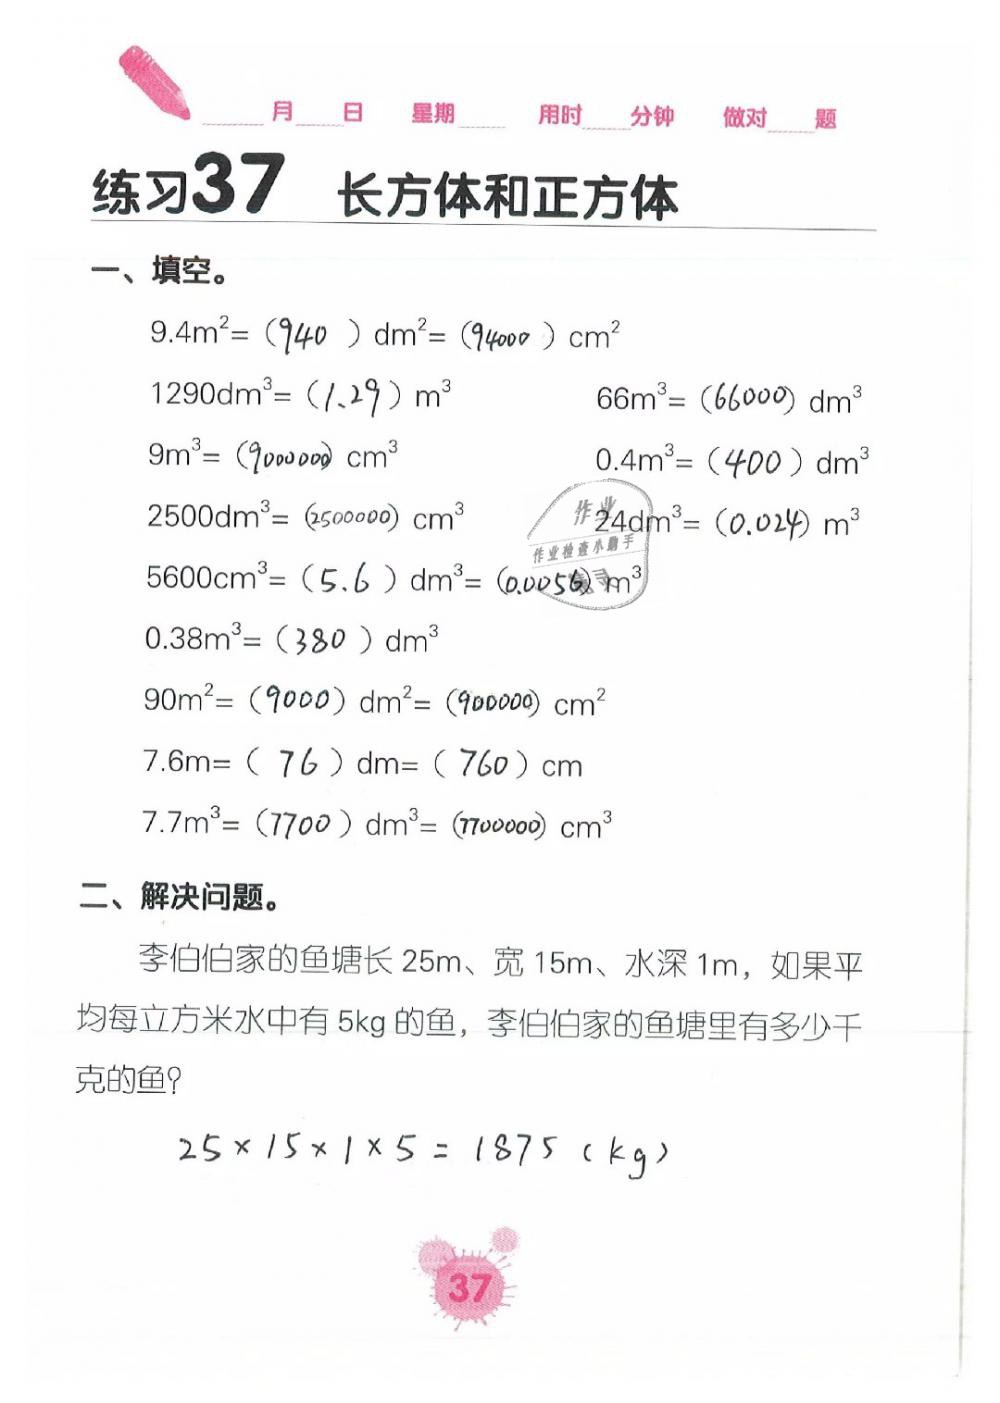 月 日 星期 用时 分钟 做对 题
练习37 长方体和正方体
一、填空。
9.4m²=（940）dm²=（94000）cm²
1290dm³=（1.29）m³ 66m³=（66000）dm³
9m³=（9000000）cm³ 0.4m³=（400）dm³
2500dm³=（2500000）cm³ 24dm³=（0.024）m³
5600cm³=（5.6）dm³=（0.0056）m³
0.38m³=（380）dm³
90m²=（9000）dm²=（900000）cm²
7.6m=（76）dm=（760）cm
7.7m³=（7700）dm³=（7700000）cm³
作业
作业检查小助手
二、解决问题。
李伯伯家的鱼塘长 25m、宽 15m、水深 1m，如果平
均每立方米水中有 5kg 的鱼，李伯伯家的鱼塘里有多少千
克的鱼？
25×15×1×5=1875（kg）
37